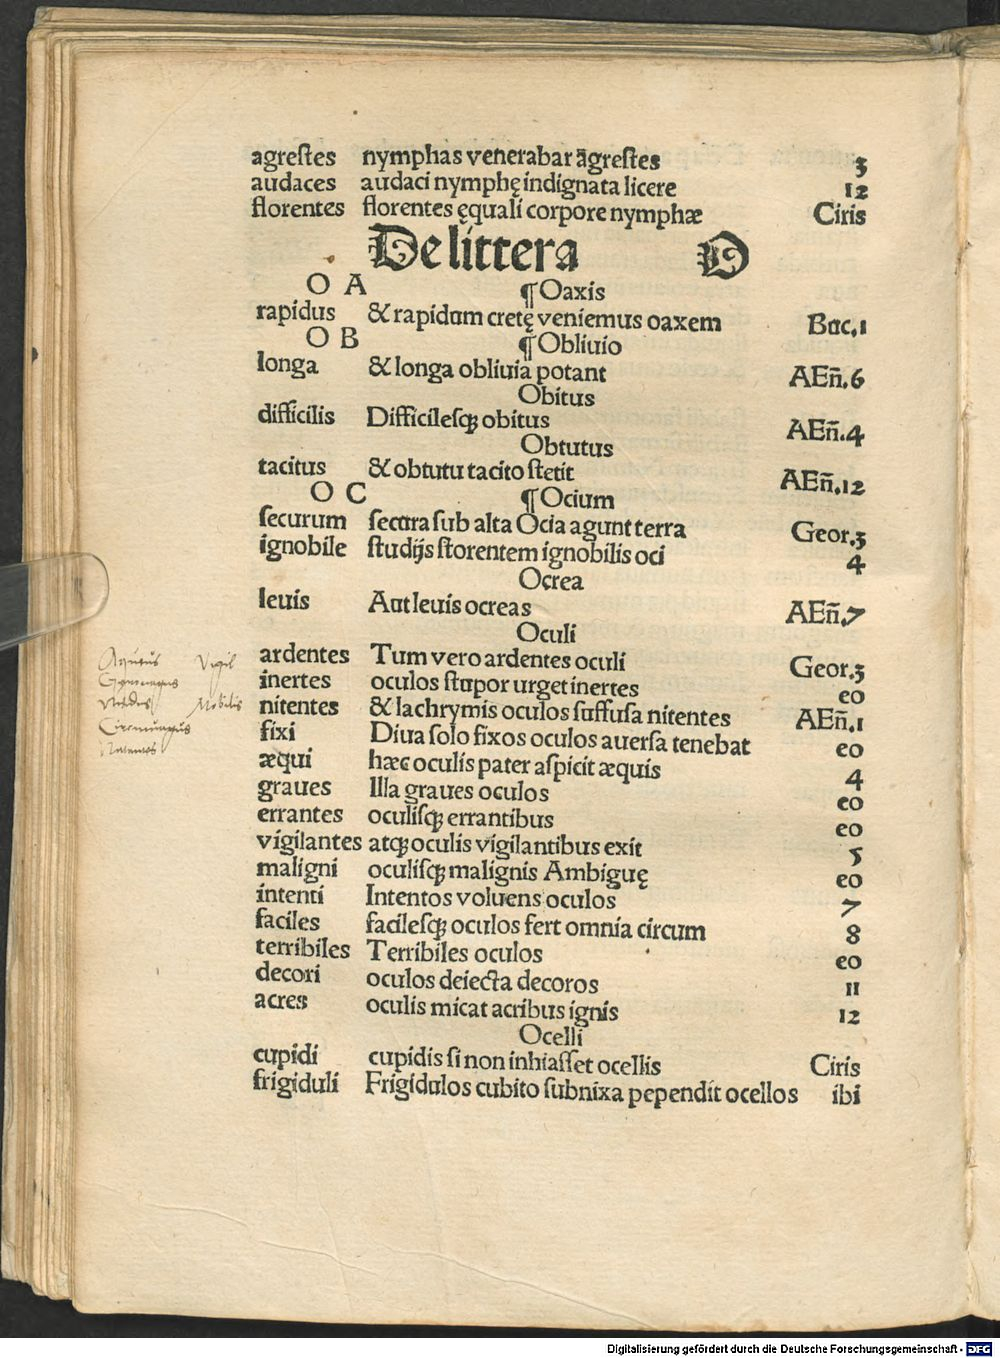 agreſtes nymphas venerabar ãgreſtes 3
audaces audaci nymphę indignata licere 12
florentes florentes ęquali corpore nymphæ Ciris
De littera O
O A ¶Oaxis
rapidus & rapidum cretę veniemus oaxem Buc.1
O B ¶Obliuio
longa & longa obliuia potant AEñ.6
Obitus
difficilis Difficileſqȝ obitus AEñ.4
Obtutus
tacitus & obtutu tacito ſtetit AEñ.12
O C ¶Ocium
ſecurum ſecura ſub alta Ocia agunt terra Geor.3
ignobile ſtudijs ſlorentem ignobilis oci 4
Ocrea
leuis Aut leuis ocreas AEñ.7
Oculi
ardentes Tum vero ardentes oculi Geor.3
inertes oculos ſtupor urget inertes eo
nitentes & lachrymis oculos ſuffuſa nitentes AEñ.1
fixi Diua ſolo fixos oculos auerſa tenebat eo
æqui hæc oculis pater aſpicit æquis 4
graues Illa graues oculos eo
errantes oculiſqȝ errantibus eo
vigilantes atqȝ oculis vigilantibus exit 5
maligni oculiſqȝ malignis Ambiguę eo
intenti Intentos voluens oculos 7
faciles facileſqȝ oculos fert omnia circum 8
terribiles Terribiles oculos eo
decori oculos deiecta decoros 11
acres oculis micat acribus ignis 12
Ocelli
cupidi cupidis ſi non inhiaſſet ocellis Ciris
frigiduli Frigidulos cubito ſubnixa pependit ocellos ibi
Vigil
Mobilis
Digitalisierung gefördert durch die Deutsche Forschungsgemeinschaft - DFG